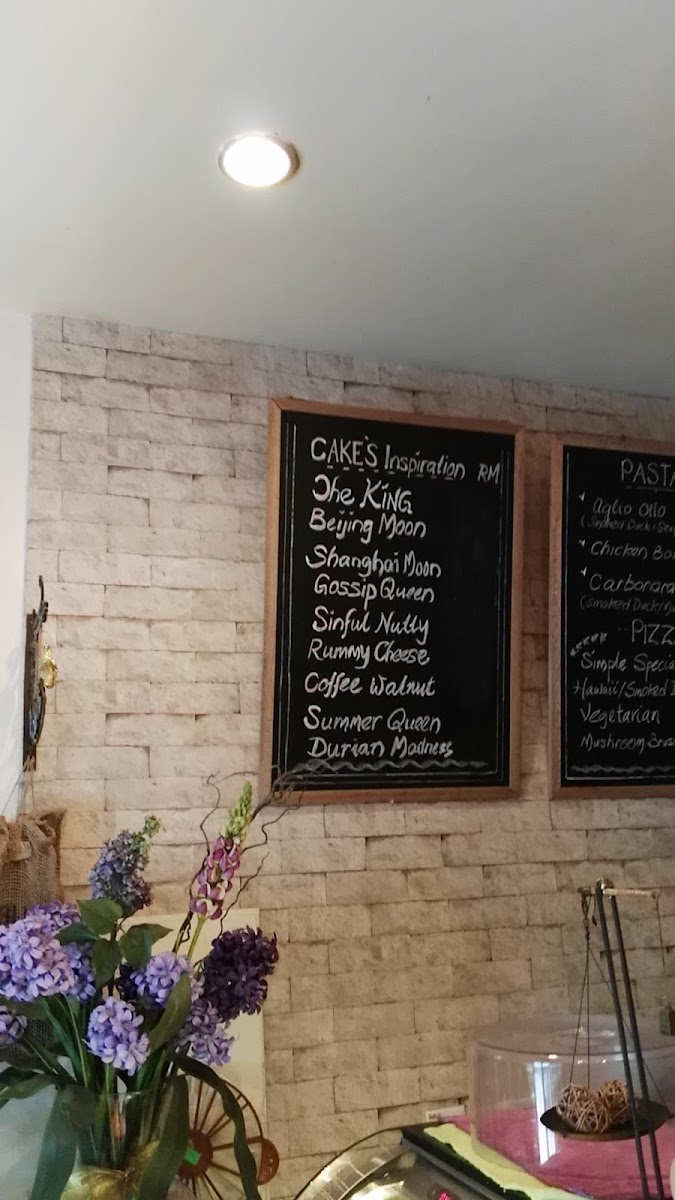 CAKE'S Inspiration RM
The KING
Beijing Moon
Shanghai Moon
Gossip Queen
Sinful Nutty
Rummy Cheese
Coffee Walnut
Summer Queen
Durian Madness
PASTA
Aglio Olio
(Smoked Duck/
Chicken
Carbonara
(Smoked Duck/
PIZZ
Simple Specia
Hawaii/Smoked
Vegetarian
Mushroom